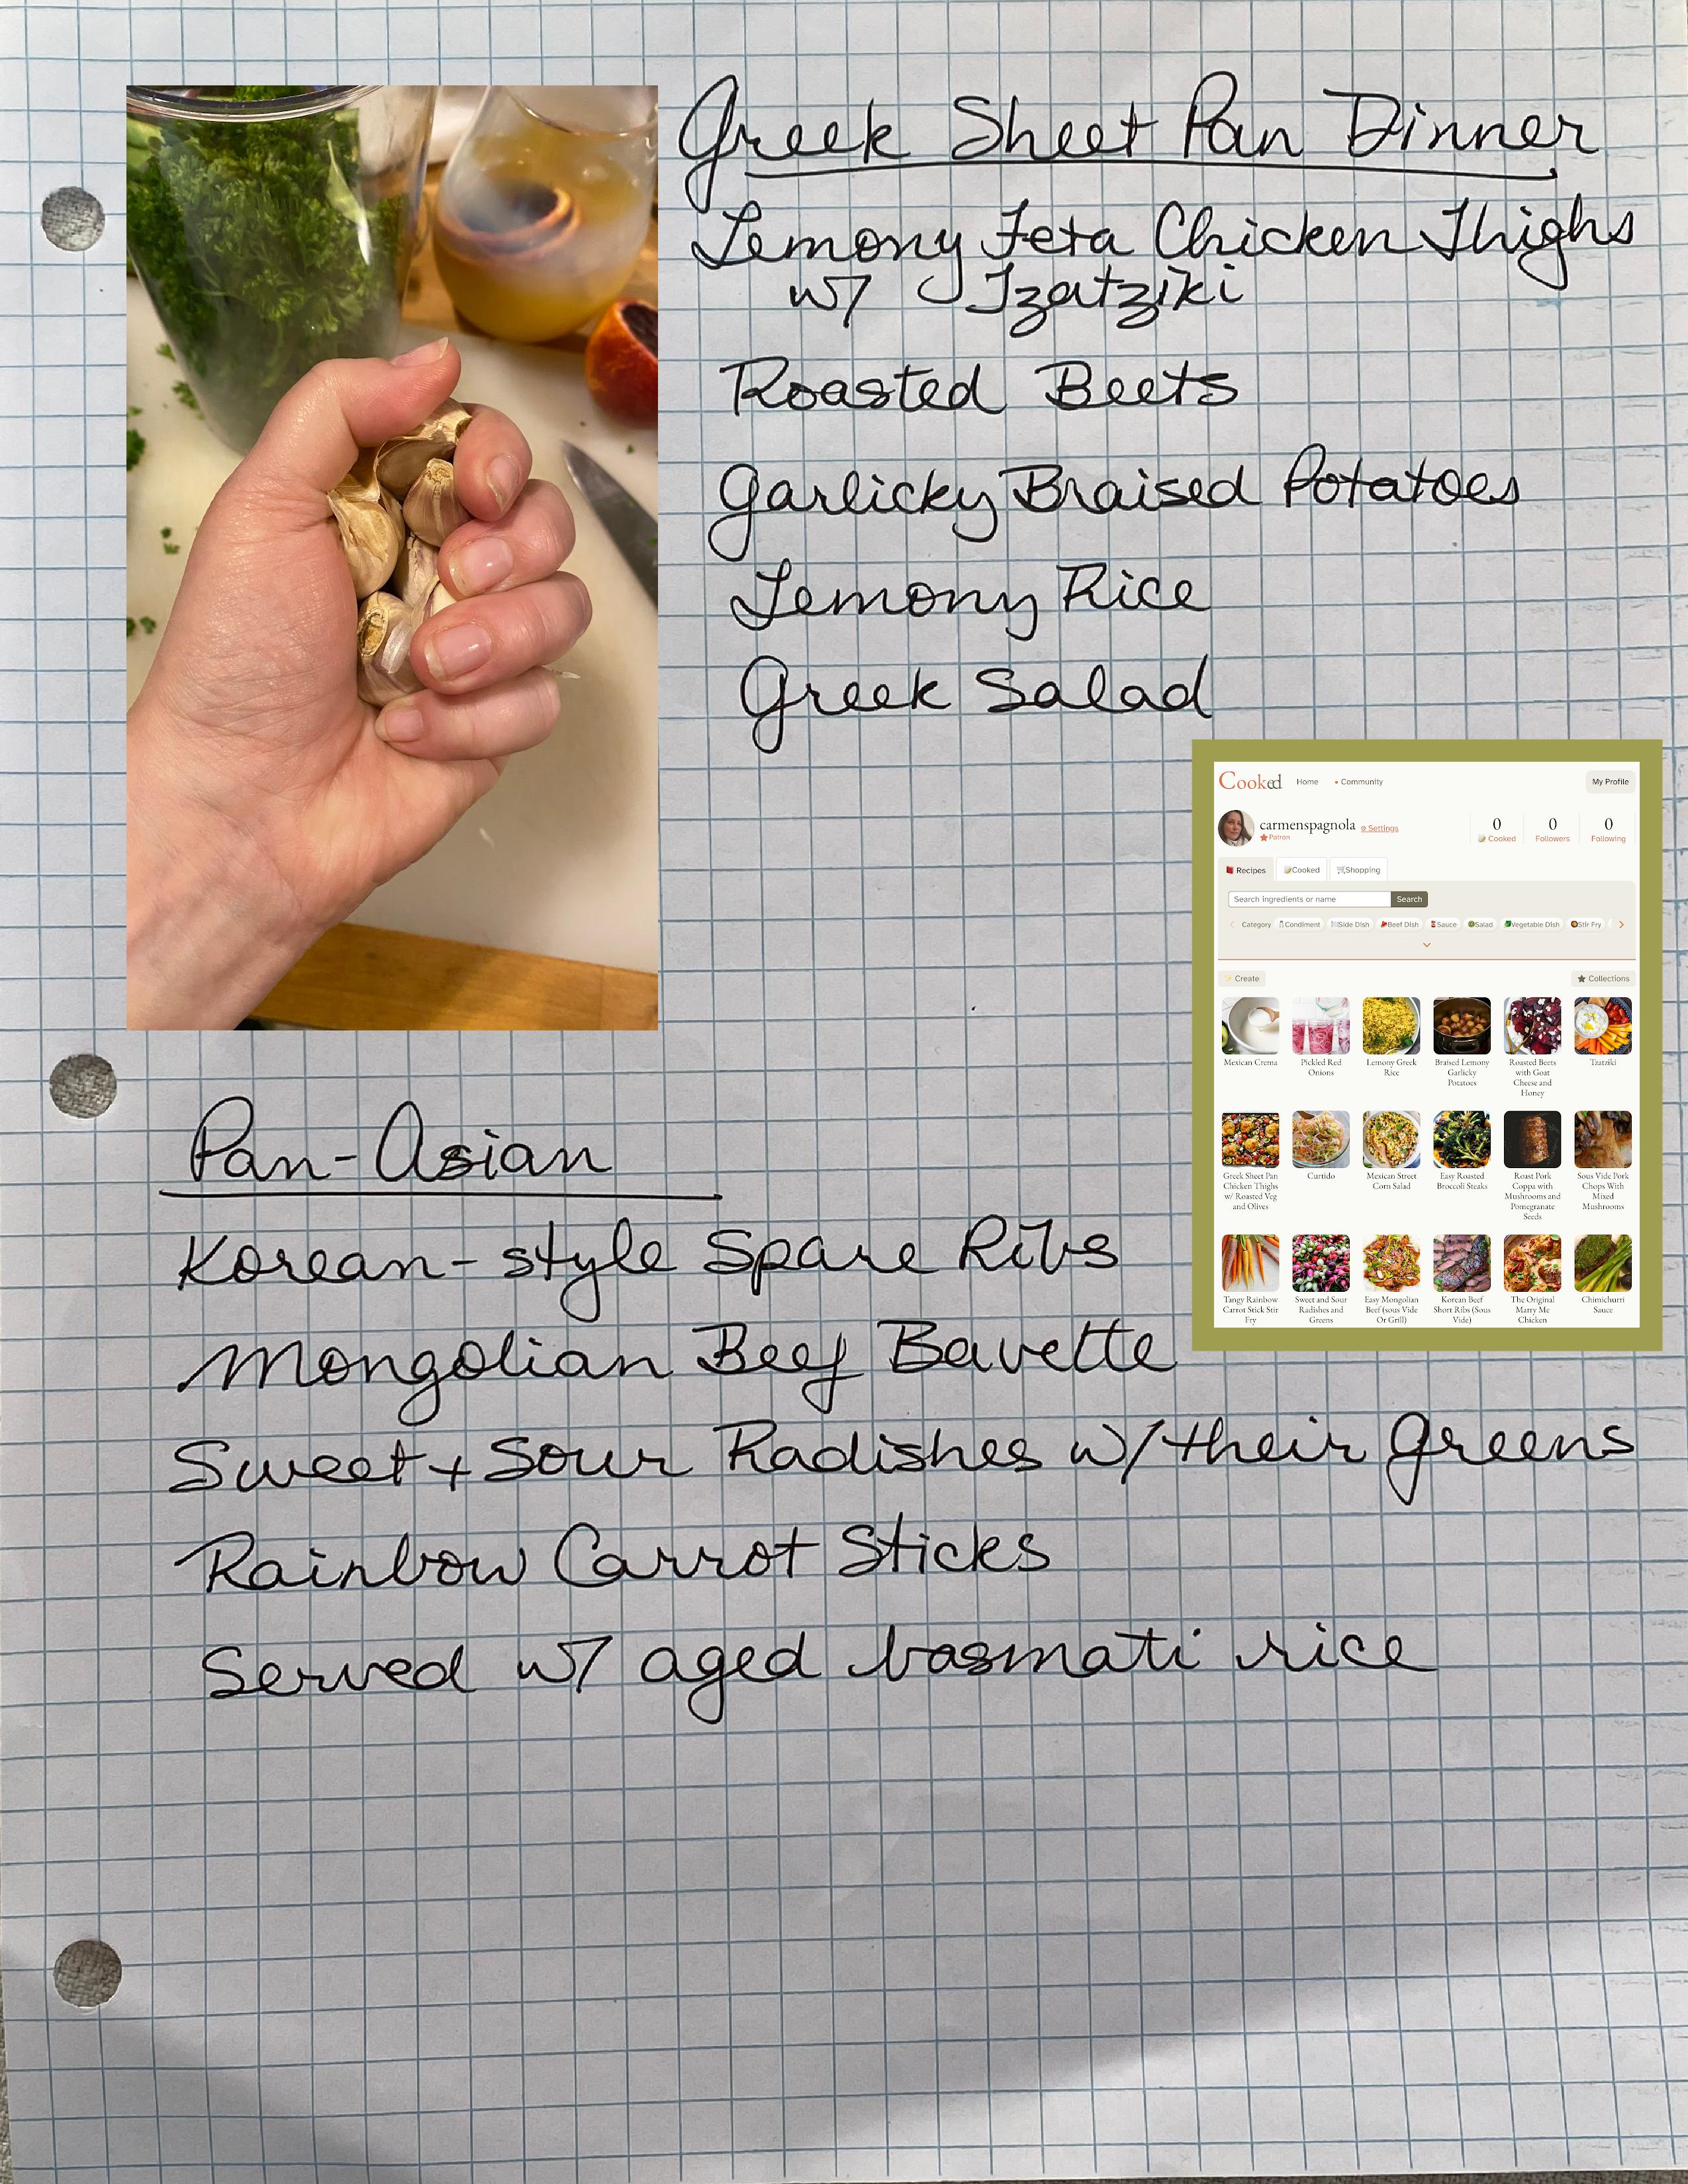 Greek Sheet Pan Dinner
Lemony Feta Chicken Thighs
w/ Tzatziki
Roasted Beets
Garlicky Braised Potatoes
Lemony Rice
Greek Salad
Cooked Home • Community My Profile
carmenspagnola Settings
Patron
0 0 0
Cooked Followers Following
Recipes Cooked Shopping
Search ingredients or name Search
Category Condiment Side Dish Beef Dish Sauce Salad Vegetable Dish Stir Fry
Create Collections
Mexican Crema
Pickled Red
Onions
Lemony Greek
Rice
Braised Lemony
Garlicky
Potatoes
Roasted Beets
with Goat
Cheese and
Honey
Tzatziki
Greek Sheet Pan
Chicken Thighs
w/ Roasted Veg
and Olives
Curtido
Mexican Street
Corn Salad
Easy Roasted
Broccoli Steaks
Roast Pork
Coppa with
Mushrooms and
Pomegranate
Seeds
Sous Vide Pork
Chops With
Mixed
Mushrooms
Tangy Rainbow
Carrot Stick Stir
Fry
Sweet and Sour
Radishes and
Greens
Easy Mongolian
Beef (sous Vide
Or Grill)
Korean Beef
Short Ribs (Sous
Vide)
The Original
Marry Me
Chicken
Chimichurri
Sauce
Pan-Asian
Korean-style Spare Ribs
Mongolian Beef Bavette
Sweet + Sour Radishes w/ their greens
Rainbow Carrot Sticks
Served w/ aged basmati rice